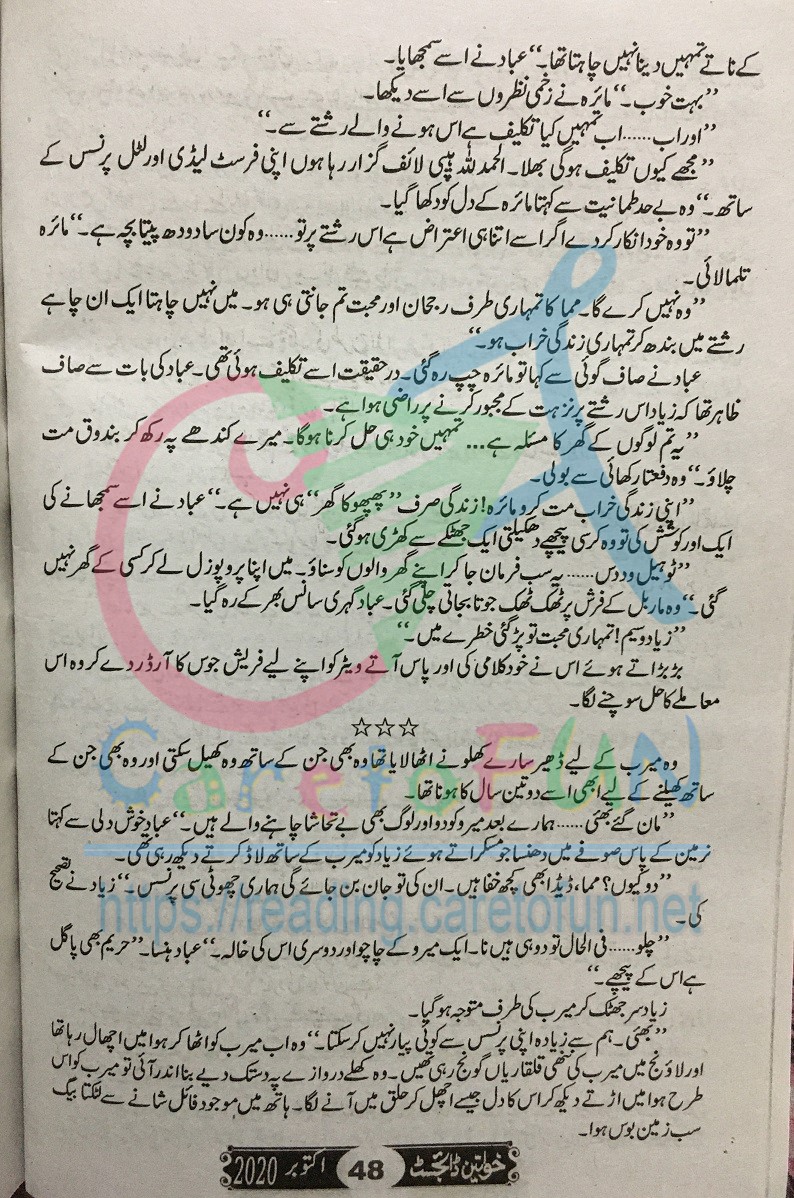 کے ناتے تمہیں دینا نہیں چاہتا تھا۔‘‘ عباد نے اسے سمجھایا۔
’’بہت خوب۔‘‘ مائرہ نے زخمی نظروں سے اسے دیکھا۔
’’اور اب...... اب تمہیں کیا تکلیف ہے اس ہونے والے رشتے سے۔‘‘
’’مجھے کیوں تکلیف ہوگی بھلا۔ الحمد للہ ہیپی لائف گزار رہا ہوں اپنی فرسٹ لیڈی اور لٹل پرنس کے
ساتھ۔‘‘ وہ بے حد طمانیت سے کہتا مائرہ کے دل کو دکھا گیا۔
’’تو وہ خود انکار کر دے اگر اسے اتنا ہی اعتراض ہے اس رشتے پر تو...... وہ کون سا دودھ پیتا بچہ ہے۔‘‘ مائرہ
تلملائی۔
’’وہ نہیں کرے گا۔ مما کا تمہاری طرف رجحان اور محبت تم جانتی ہی ہو۔ میں نہیں چاہتا ایک ان چاہے
رشتے میں بندھ کر تمہاری زندگی خراب ہو۔‘‘
عباد نے صاف گوئی سے کہا تو مائرہ چپ رہ گئی۔ درحقیقت اسے تکلیف ہوئی تھی۔ عباد کی بات سے صاف
ظاہر تھا کہ زیاد اس رشتے پر نزہت کے مجبور کرنے پر راضی ہوا ہے۔
’’یہ تم لوگوں کے گھر کا مسئلہ ہے... تمہیں خود ہی حل کرنا ہوگا۔ میرے کندھے پہ رکھ کر بندوق مت
چلاؤ۔‘‘ وہ دفعتاً رکھائی سے بولی۔
’’اپنی زندگی خراب مت کرو مائرہ! زندگی صرف ’’پھپھو کا گھر‘‘ ہی نہیں ہے۔‘‘ عباد نے اسے سمجھانے کی
ایک اور کوشش کی تو وہ کرسی پیچھے دھکیلتی ایک جھٹکے سے کھڑی ہوگئی۔
’’ٹو ہیل ود دس...... یہ سب فرمان جا کر اپنے گھر والوں کو سناؤ۔ میں اپنا پروپوزل لے کر کسی کے گھر نہیں
گئی۔‘‘ وہ ماربل کے فرش پر ٹھک ٹھک جوتا بجاتی چلی گئی۔ عباد گہری سانس بھر کے رہ گیا۔
’’زیاد وسیم! تمہاری محبت تو پڑ گئی خطرے میں۔‘‘
بڑبڑاتے ہوئے اس نے خود کلامی کی اور پاس آتے ویٹر کو اپنے لیے فریش جوس کا آرڈر دے کر وہ اس
معاملے کا حل سوچنے لگا۔
☆☆☆
وہ میرب کے لیے ڈھیر سارے کھلونے اٹھا لایا تھا وہ بھی جن کے ساتھ وہ کھیل سکتی اور وہ بھی جن کے
ساتھ کھیلنے کے لیے ابھی اسے دو تین سال کا ہونا تھا۔
’’مان گئے بھئی...... ہمارے بعد میرو کو دو اور لوگ بھی بے تحاشا چاہنے والے ہیں۔‘‘ عباد خوش دلی سے کہتا
نرمین کے پاس صوفے میں دھنسا جو مسکراتے ہوئے زیاد کو میرب کے ساتھ لاڈ کرتے دیکھ رہی تھی۔
’’دو کیوں؟ مما، ڈیڈ ابھی کچھ خفا ہیں۔ ان کی تو جان بن جائے گی ہماری چھوٹی سی پرنسس۔‘‘ زیاد نے تصحیح
کی۔
’’چلو...... فی الحال تو دو ہی ہیں نا۔ ایک میرو کے چاچو اور دوسری اس کی خالہ۔‘‘ عباد ہنسا۔ ’’حریم بھی پاگل
ہے اس کے پیچھے۔‘‘
زیاد سر جھٹک کر میرب کی طرف متوجہ ہوگیا۔
’’بھئی۔ ہم سے زیادہ اپنی پرنسس سے کوئی پیار نہیں کر سکتا۔‘‘ وہ اب میرب کو اٹھا کر ہوا میں اچھال رہا تھا
اور لاؤنج میں میرب کی ننھی قلقاریاں گونج رہی تھیں۔ وہ کھلے دروازے پہ دستک دیے بنا اندر آئی تو میرب کو اس
طرح ہوا میں اڑتے دیکھ کر اس کا دل جیسے اچھل کر حلق میں آنے لگا۔ ہاتھ میں موجود فائل شانے سے لٹکتا بیگ
سب زمین بوس ہوا۔
CaretoFUN
https://reading.caretofun.net
خواتین ڈائجسٹ 48 اکتوبر 2020